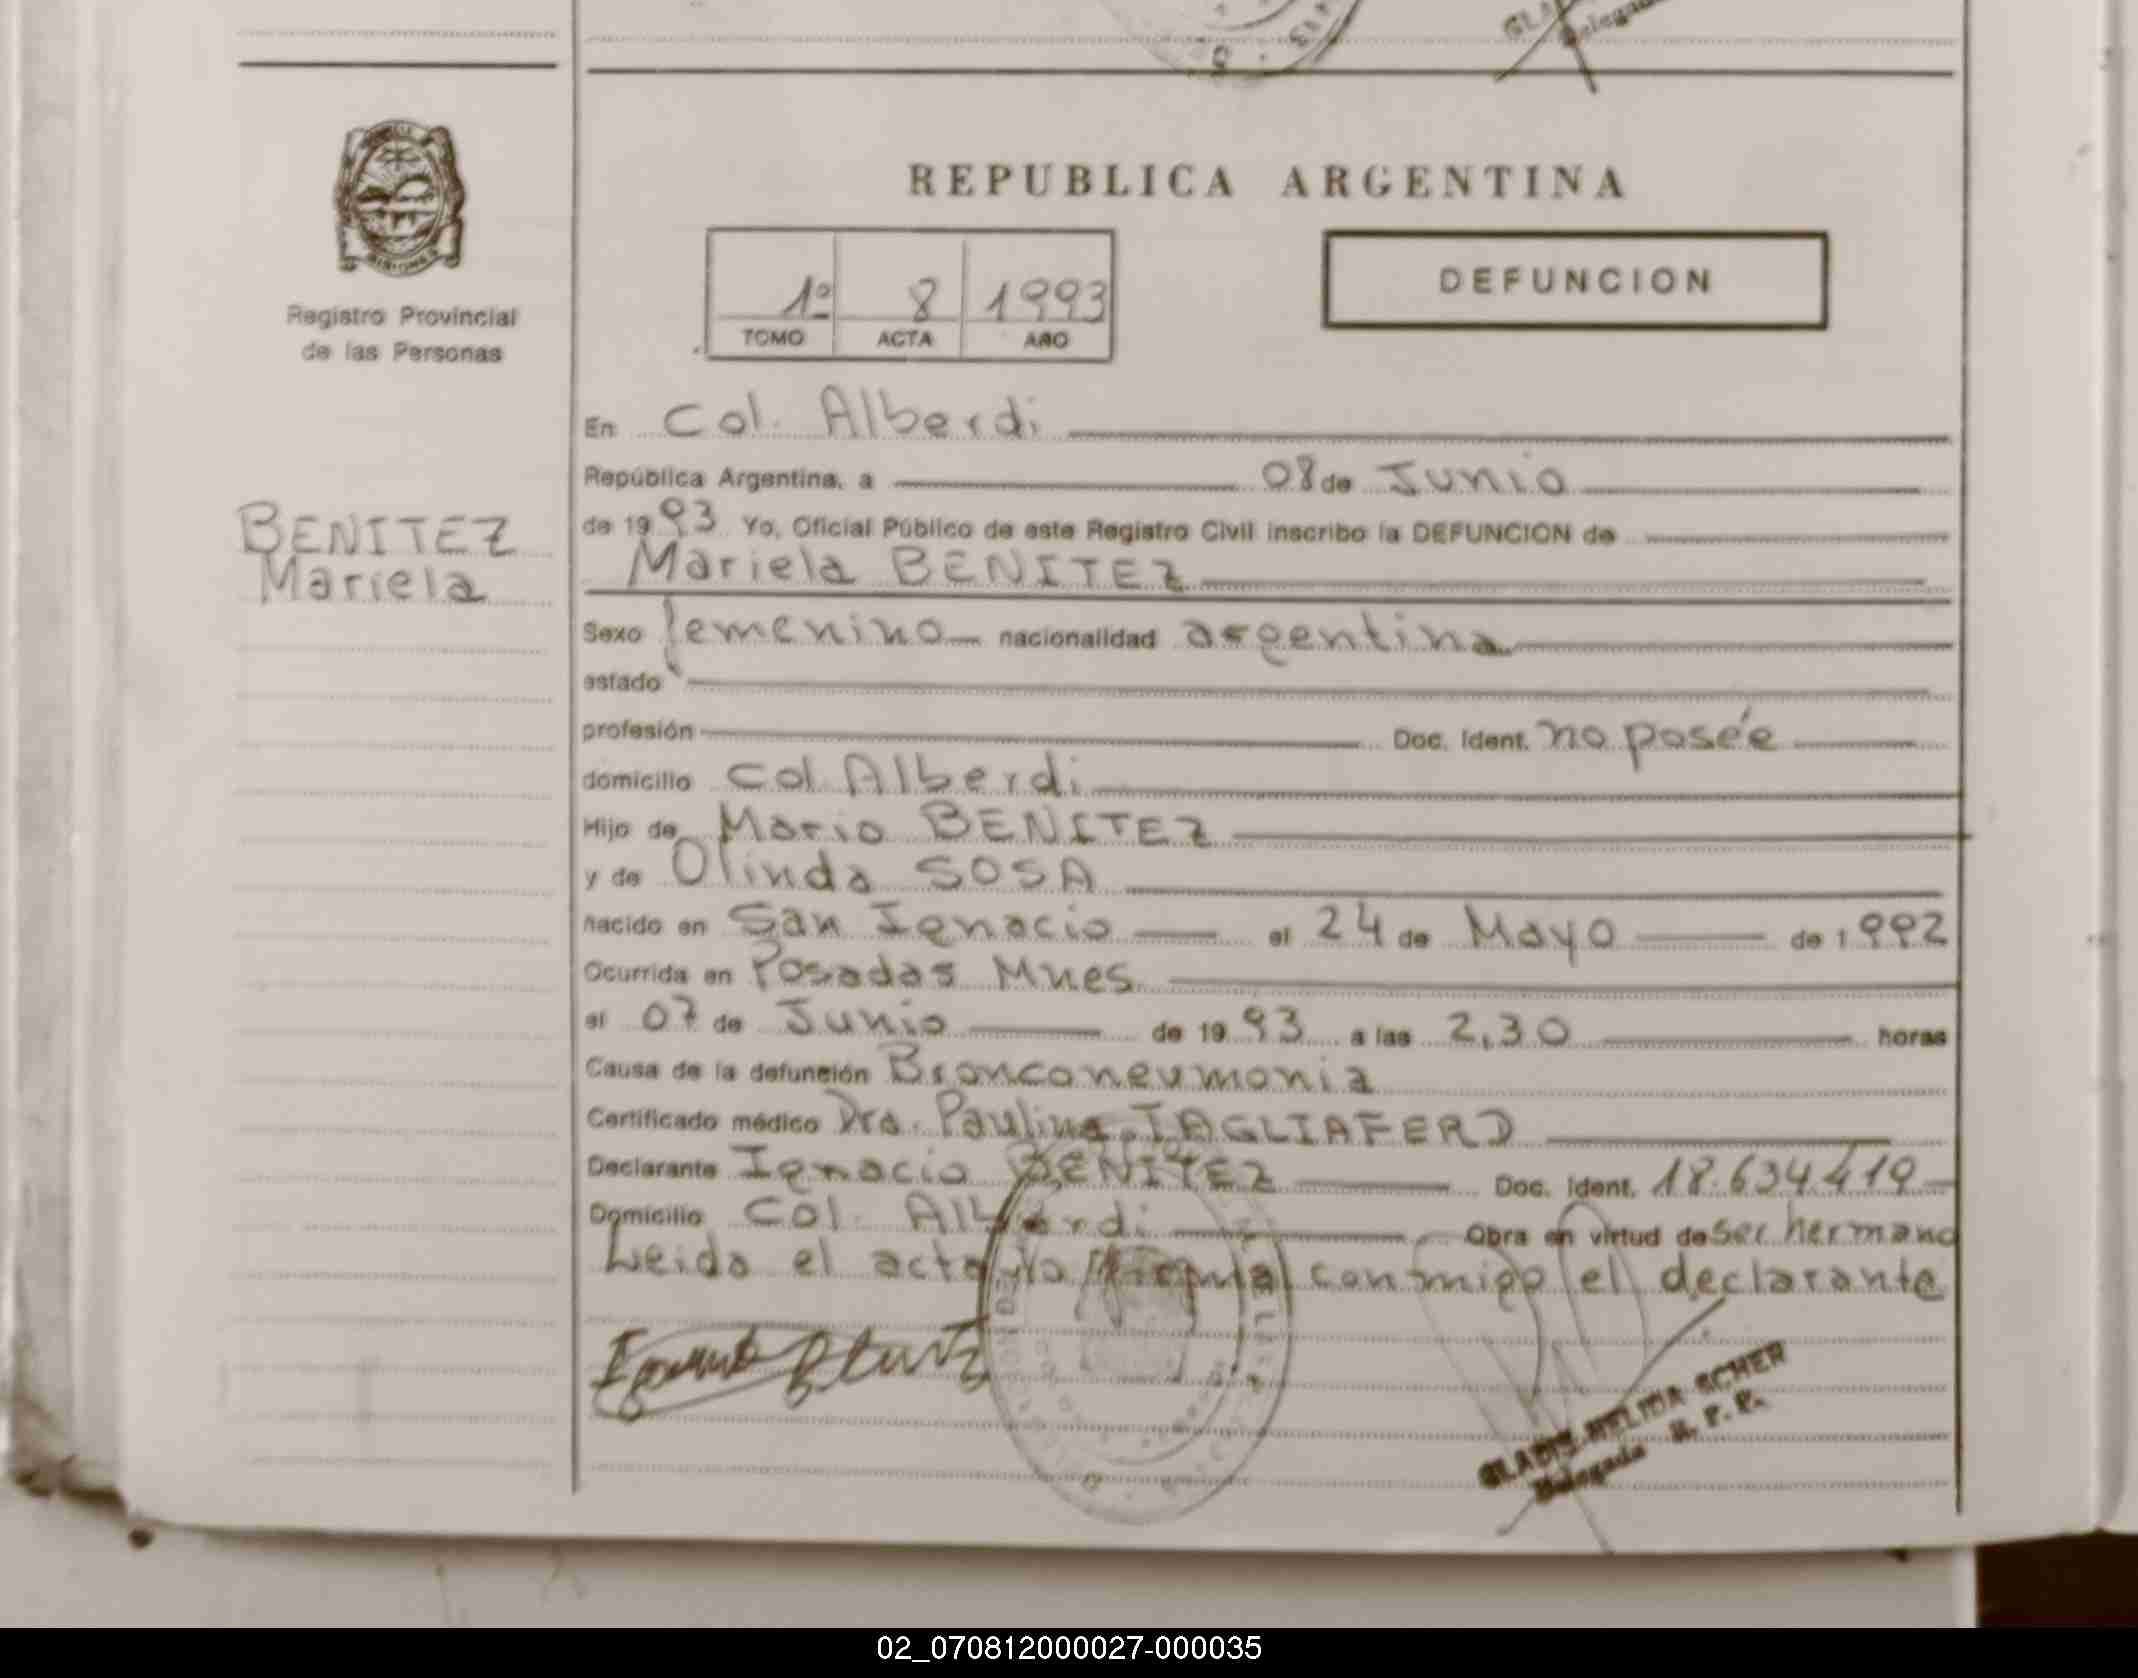 REPUBLICA ARGENTINA
DEFUNCION
1º 8 1993
TOMO ACTA AÑO
Registro Provincial
de las Personas
BENITEZ
Mariela
En Col. Alberdi
República Argentina, a 08 de Junio
de 1993 Yo, Oficial Público de este Registro Civil inscribo la DEFUNCION de
Mariela BENITEZ
Sexo femenino nacionalidad argentina
estado
profesión Doc. Ident. no posée
domicilio Col Alberdi
Hijo de Mario BENITEZ
y de Olinda SOSA
nacido en San Ignacio el 24 de Mayo de 1992
Ocurrida en Posadas Mnes
el 07 de Junio de 1993 a las 2,30 horas
Causa de la defunción Bronconeumonia
Certificado médico Dra. Paulina
Declarante Ignacio BENITEZ Doc. Ident. 18.634.419
Domicilio Col. Alberdi Obra en virtud de ser hermano
Leida el acta la firma conmigo el declarante
GLADIS NELIDA SCHER
Delegada R. P. P.
02_070812000027-000035